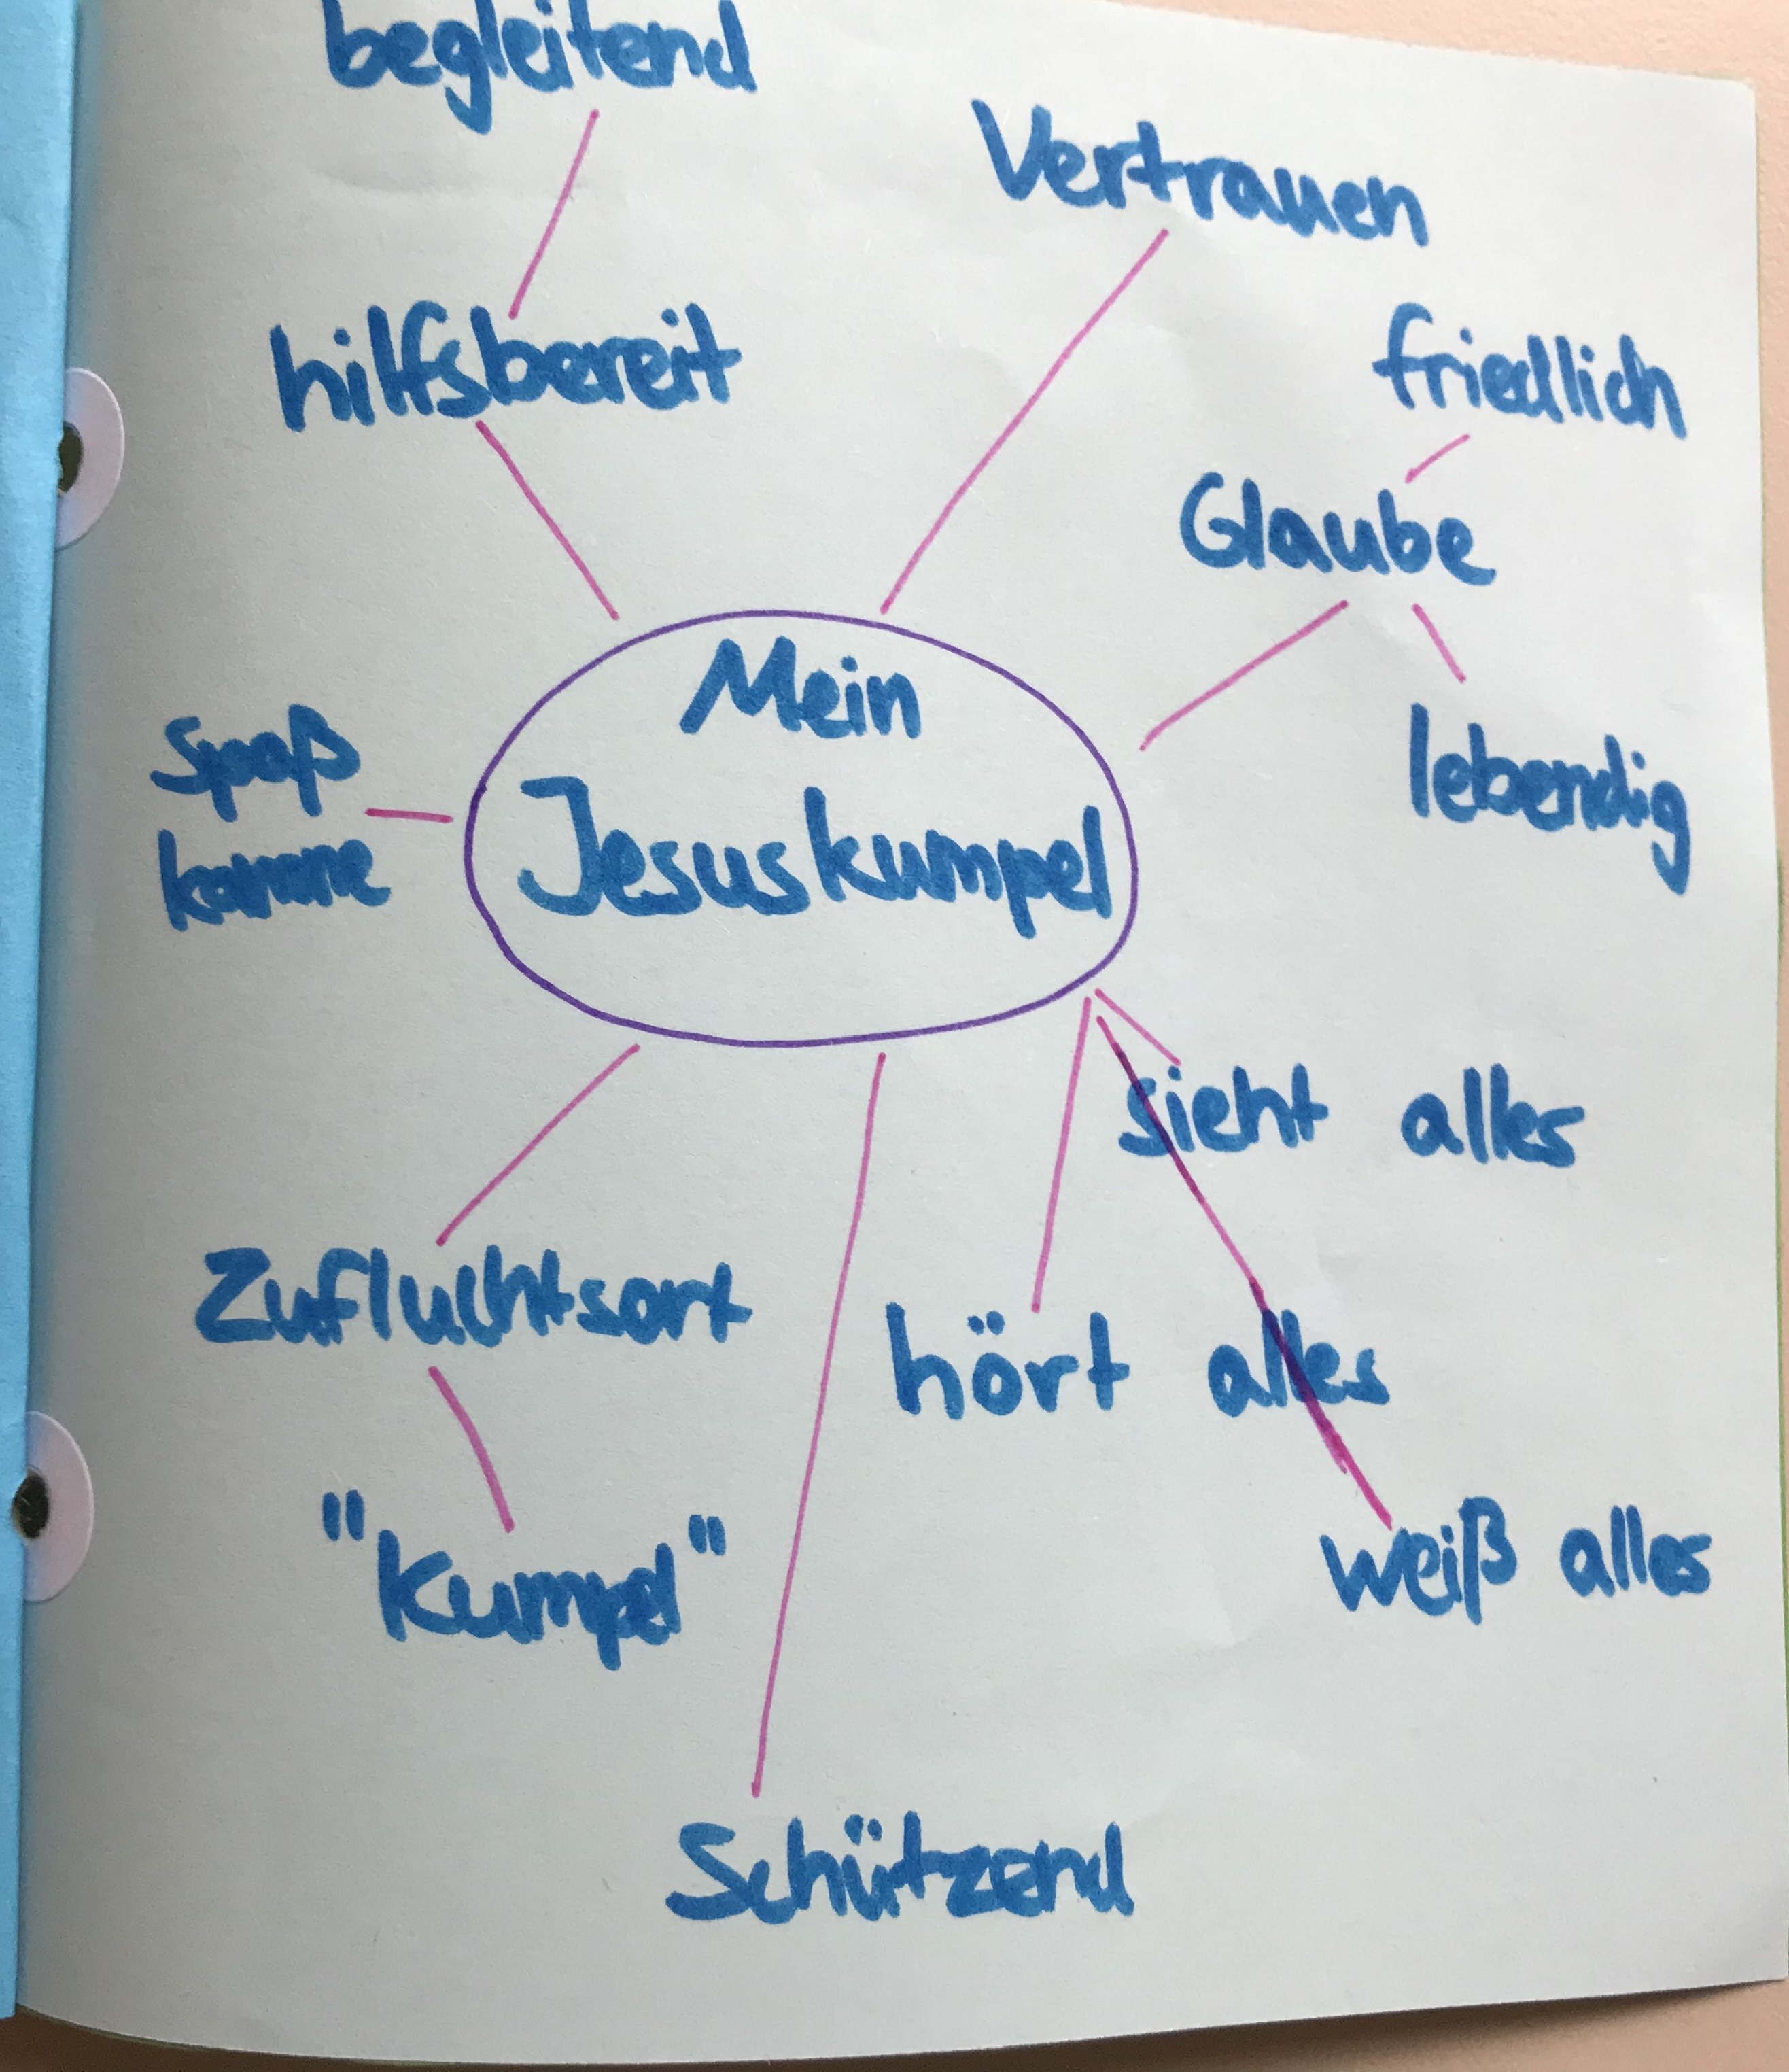 begleitend
Vertrauen
hilfsbereit
friedlich
Glaube
lebendig
Mein
Jesuskumpel
Spaß
kanone
sieht alles
Zufluchtsort
hört alles
"Kumpel"
weiß alles
Schützend